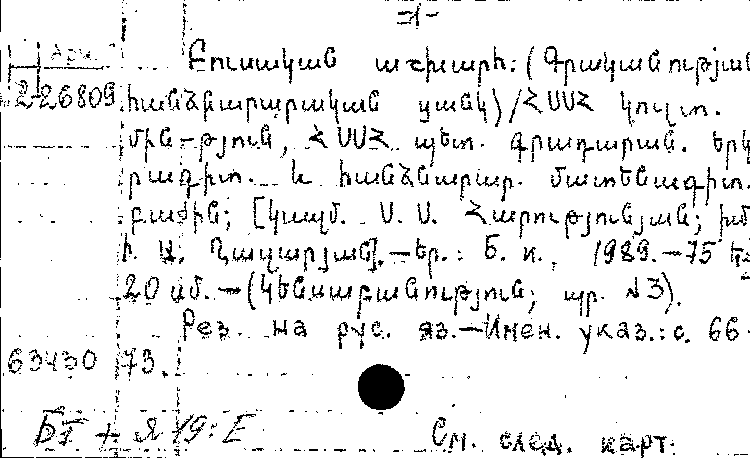 -1-
Арм.
Բուսական աշխարհ: (Գրականությա
2-26809 հանձնարարական ցանկ)/ՀՍՍՀ կուլտ.
մին-թյուն, ՀՍՍՀ պետ. գրադարան. երկ
րագիտ. և հանձնարար. մատենագիտ.
բաժին; [կազմ. Ս. Ս. Հարությունյան; խմ
Ղազարյան].—Եր.: Բ. и., 1989.—75 էջ
20 սմ.—(Կենսաբանություն; պր. №3).
Рез. на рус. яз.—Имен. указ.: с. 66-
63430 73.
БТ + Я 19: Е
См. след. карт.